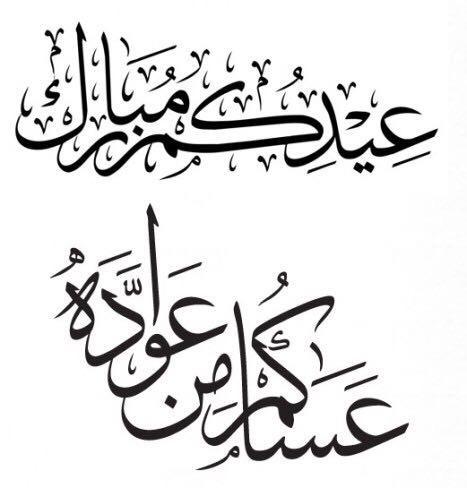 عِيْدِكُم مُبَارك
عَسَاكُم مِن عَوَادَّهُ